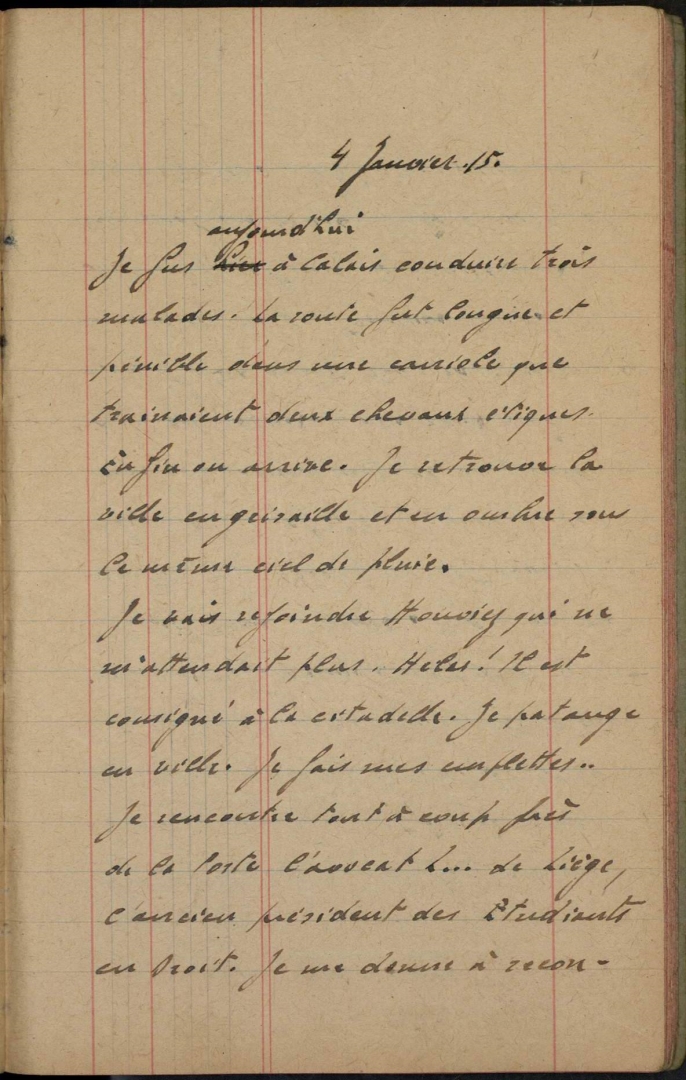 4 Janvier. 15.
aujourd'hui
Je fus hier à Calais conduire trois
malades. La route fut longue et
pénible dans une carriole que
trainaient deux chevaux étiques.
Enfin on arrive. Je retrouve la
ville en grisaille et en ombre sous
le même ciel de pluie.
Je vais rejoindre qui ne
m'attendait plus. Helas! Il est
consigné à la citadelle. Je patauge
en ville. Je fais mes emplettes..
Je rencontre tout à coup près
de la Poste l'avocat L... de Liège,
l'ancien président des Etudiants
en Droit. Je me donne à recon-